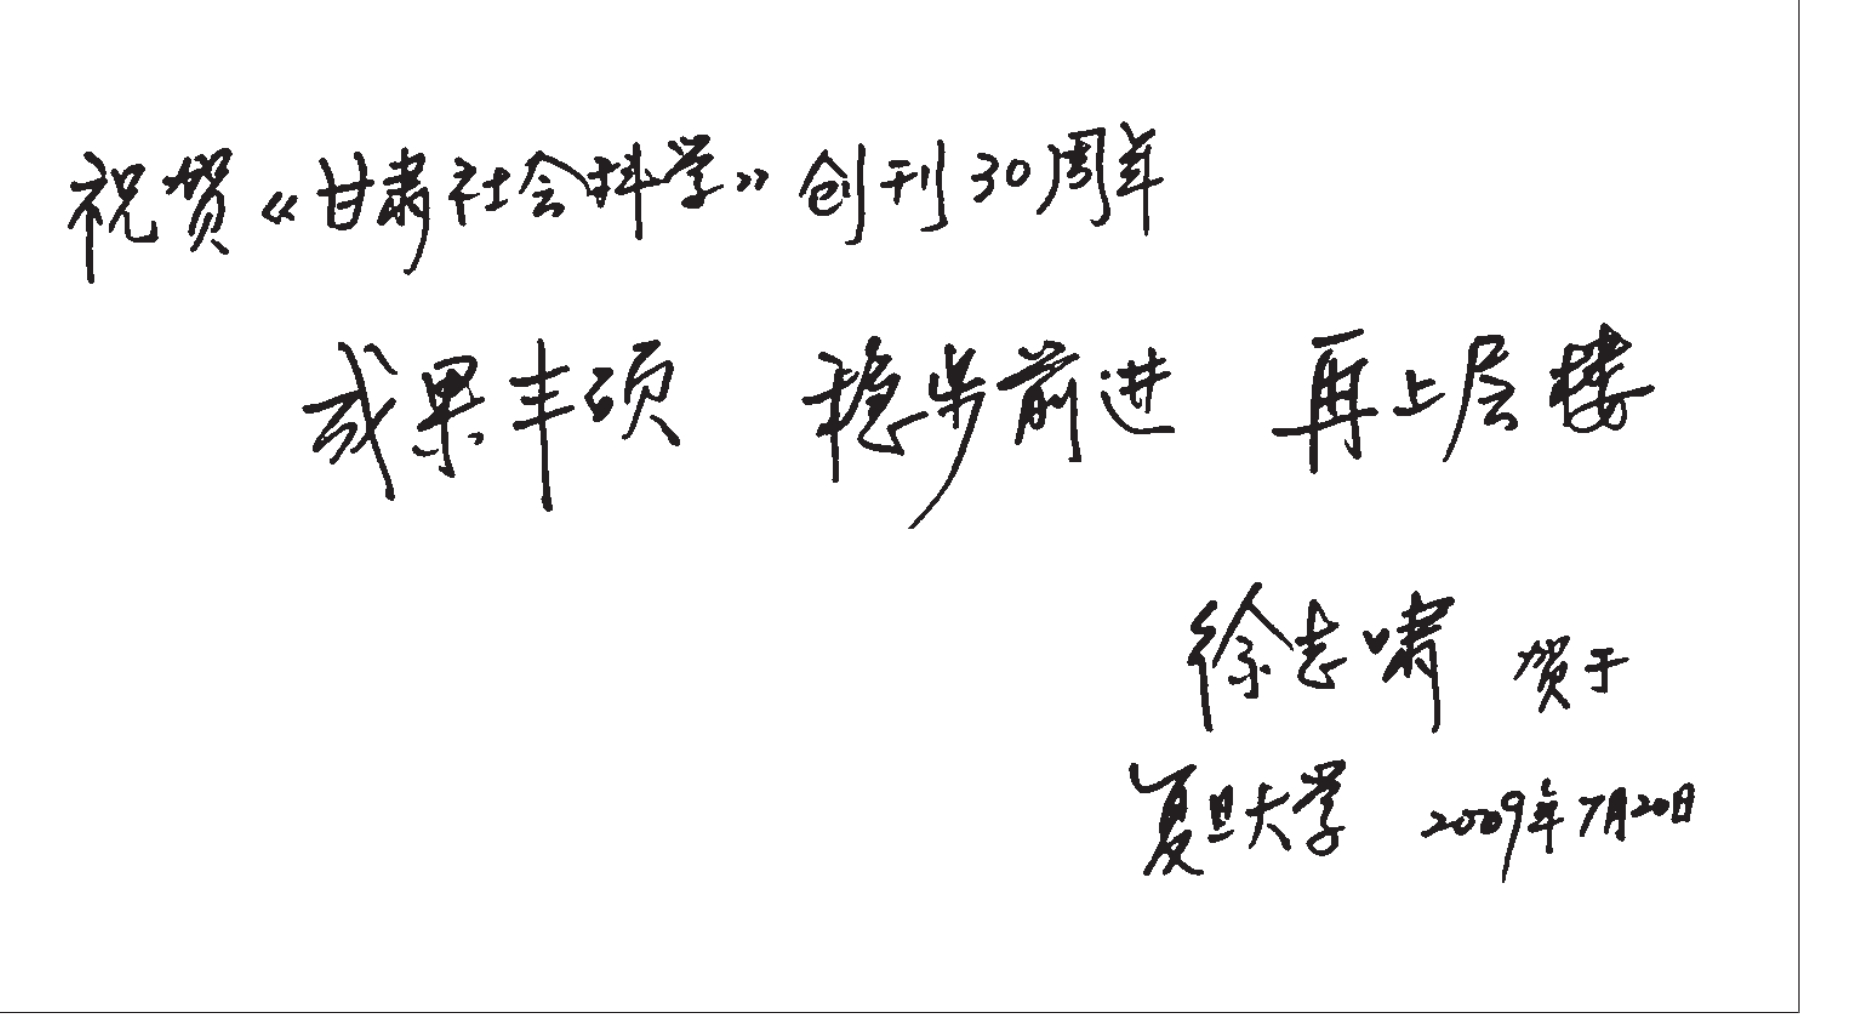 祝贺《甘肃社会科学》创刊30周年
成果丰硕 稳步前进 再上层楼
徐志啸 贺于
复旦大学 2009年7月20日